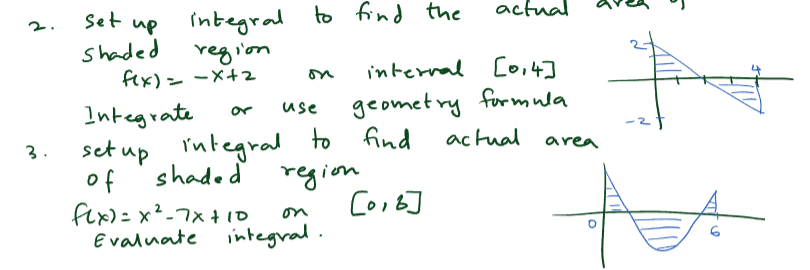 2. Set up integral to find the actual area of
shaded region
f(x) = -x+2 on interval [0,4]
Integrate or use geometry formula
3. set up integral to find actual area
of shaded region
f(x) = x² - 7x + 10 on
Evaluate integral.
2
4
-2
0
6